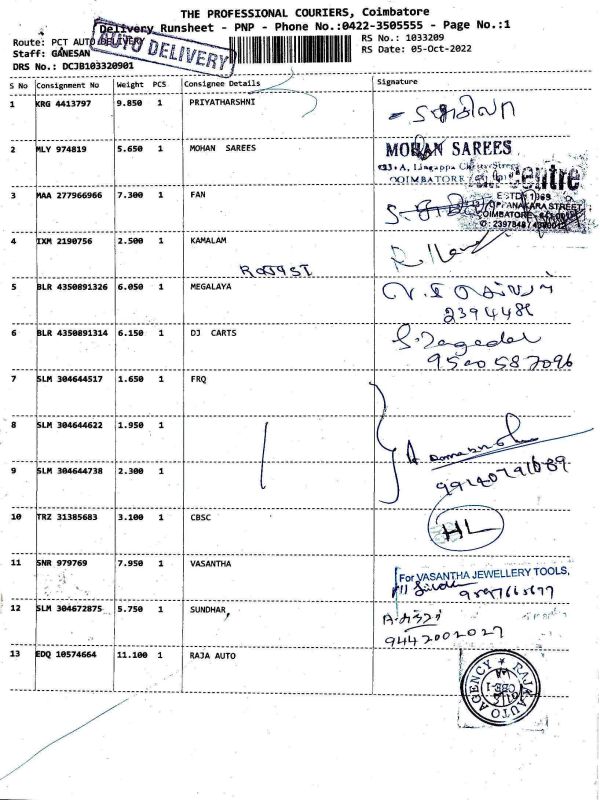 THE PROFESSIONAL COURIERS, Coimbatore
Delivery Runsheet - PNP - Phone No.:0422-3505555 - Page No.:1
Route: PCT AUTO DELIVERY
AUTO DELIVERY
RS No.: 1033209
Staff: GANESAN
RS Date: 05-Oct-2022
DRS No.: DCJB103320901
S No Consignment No Weight PCS Consignee Details Signature
1 KRG 4413797 9.850 1 PRIYATHARSHNI
2 MLY 974819 5.650 1 MOHAN SAREES MOHAN SAREES
COIMBATORE
centre
3 MAA 277966966 7.300 1 FAN
ESTD: 1969
COIMBATORE
4 IXM 2190756 2.500 1 KAMALAM
5 BLR 4350891326 6.050 1 MEGALAYA
6 BLR 4350891314 6.150 1 DJ CARTS
7 SLM 304644517 1.650 1 FRQ
8 SLM 304644622 1.950 1
9 SLM 304644738 2.300 1
10 TRZ 31385683 3.100 1 CBSC HL
11 SNR 979769 7.950 1 VASANTHA
For VASANTHA JEWELLERY TOOLS,
12 SLM 304672875 5.750 1 SUNDHAR
9442002027
13 EDQ 10574664 11.100 1 RAJA AUTO
AUTO AGENCY
CBE-1